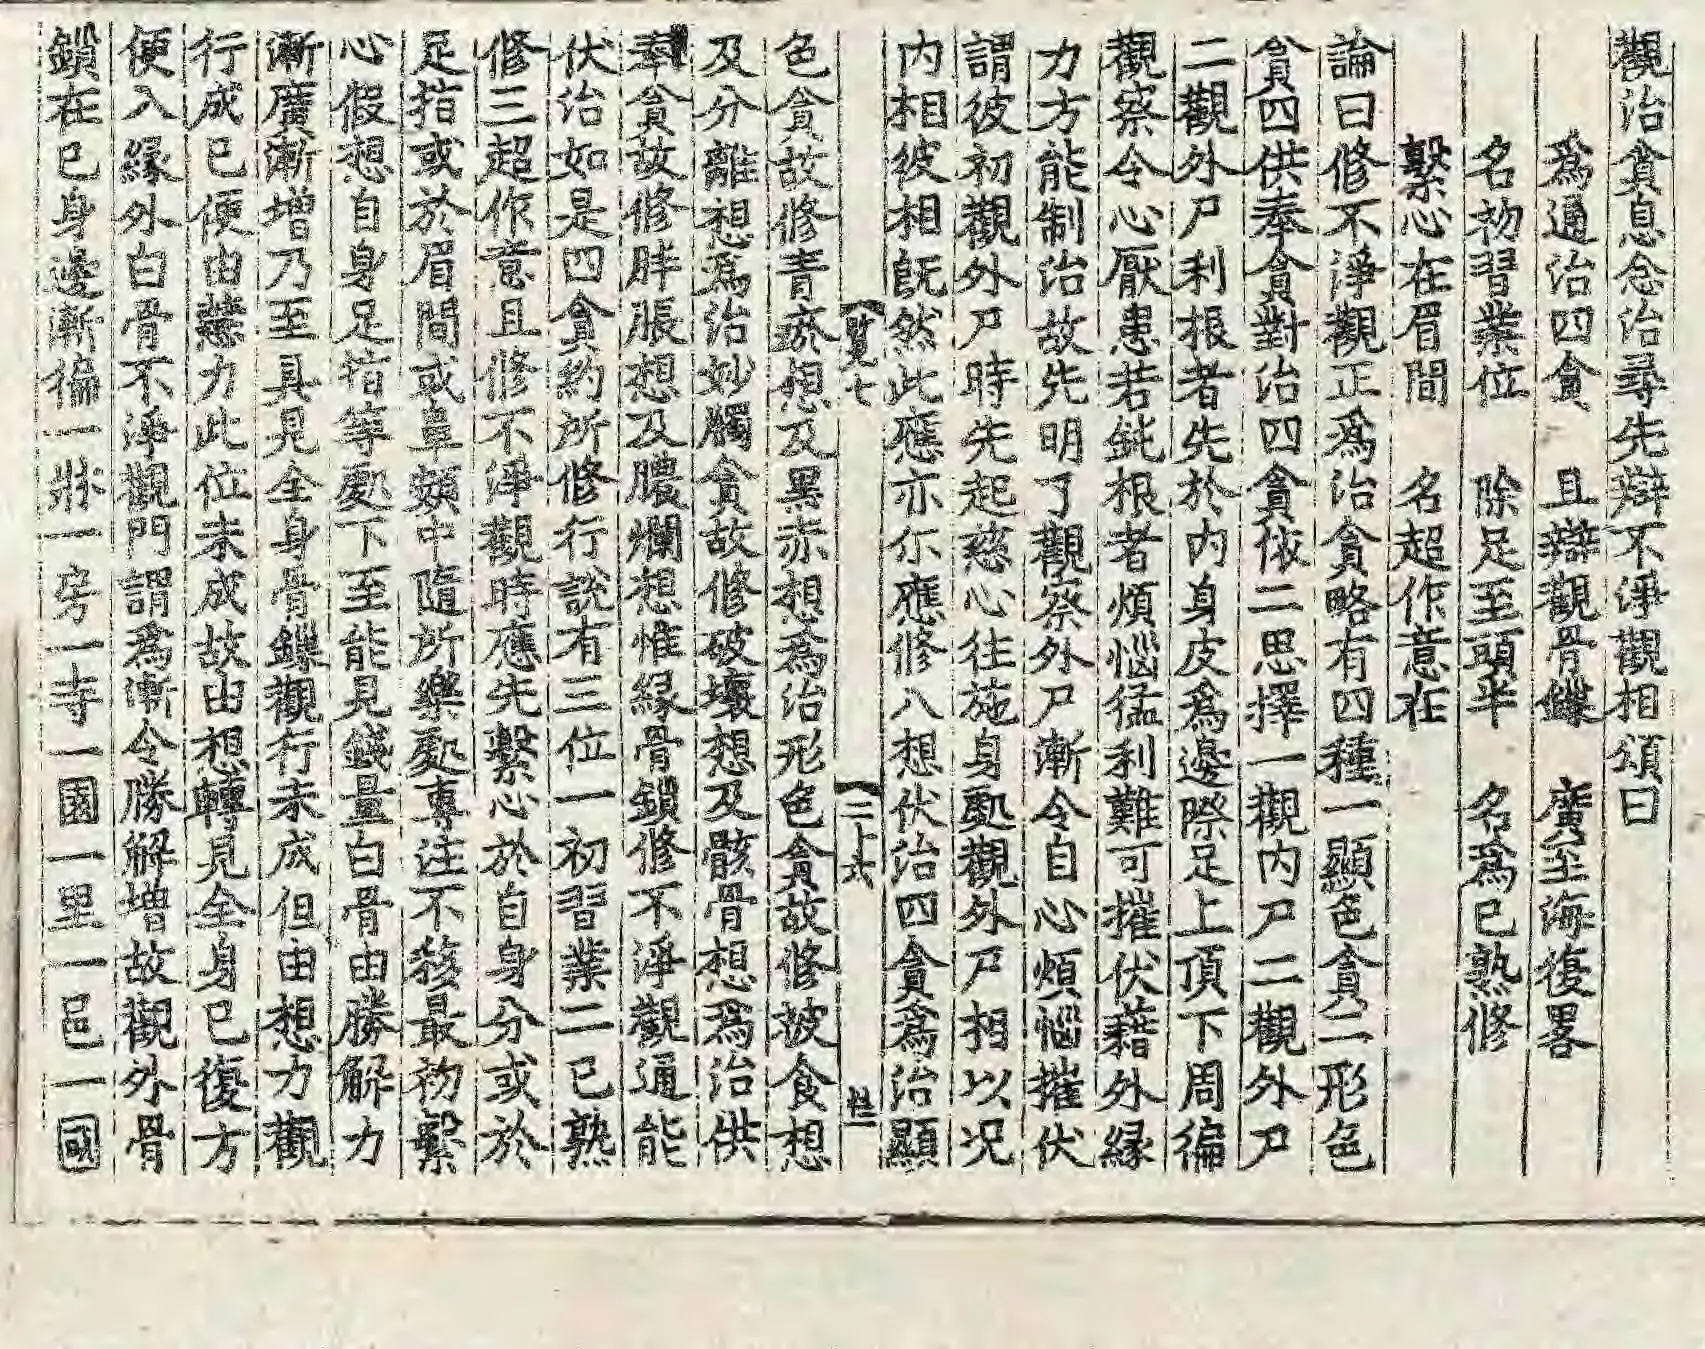 觀治貪息念治尋先辯不淨觀相頌曰
爲通治四貪　且辯觀骨鏁　廣至海復畧
名初習業位　除足至頭半　名爲已熟修
繫心在眉間　名超作意在
論曰修不淨觀正爲治貪略有四種一顯色貪二形色
貪四供奉貪對治四貪依二思擇一觀内尸二觀外尸
二觀外尸利根者先於内身皮爲邊際足上頂下周徧
觀察令心厭患若鈍根者煩惱猛利難可摧伏藉外縁
力方能制治故先明了觀察外尸漸令自心煩惱摧伏
謂彼初觀外尸時先起慈心往施身處觀外尸相以况
内相彼相旣然此應亦尒應修八想伏治四貪爲治顯
竟七
二十六
色貪故修青瘀想及黑赤想爲治形色貪故修被食想
及分離想爲治妙觸貪故修破壞想及骸骨想爲治供
奉貪故修胖脹想及膿爛想惟縁骨鎖修不淨觀通能
伏治如是四貪約所修行說有三位一初習業二已熟
修三超作意且修不淨觀時應先繫心於自身分或於
足指或於眉間或鼻頞中隨所樂處專注不移最初繫
心假想自身足指等處下至能見錢量白骨由勝解力
漸廣漸增乃至具見全身骨鏁觀行未成但由想力觀
行成已便由慧力此位未成故由想轉見全身已復方
便入縁外白骨不淨觀門謂爲漸令勝解增故觀外骨
鎖在已身邊漸徧一牀一房一寺一園一里一邑一國